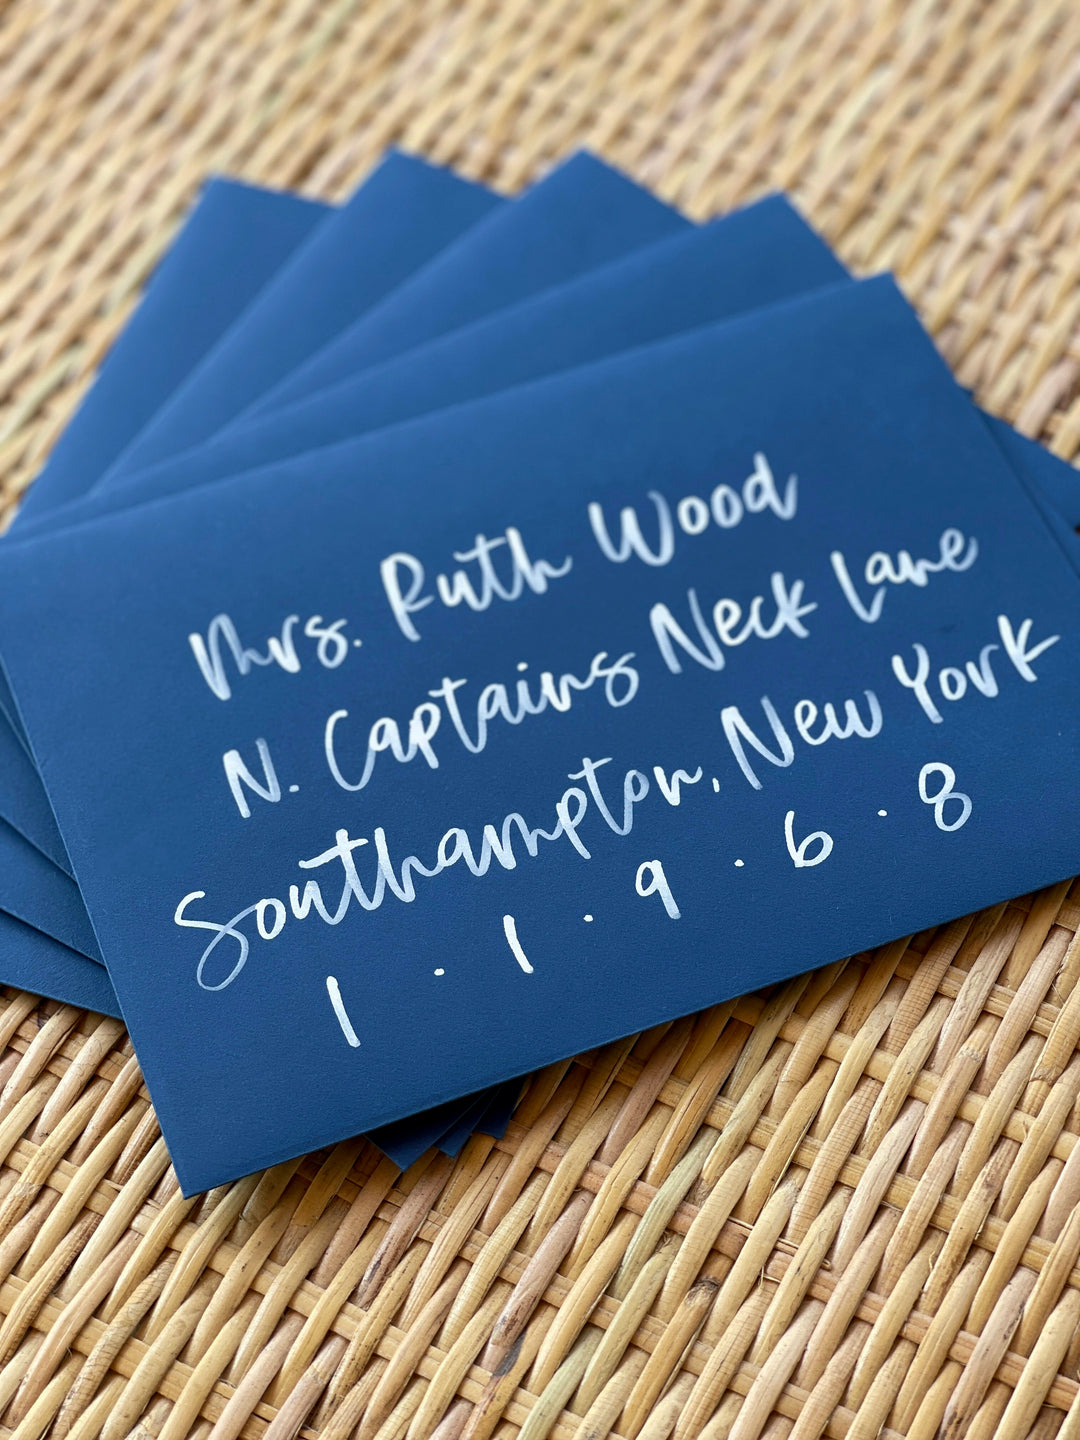 Mrs. Ruth Wood
N. Captains Neck Lane
Southampton, New York
1 · 1 · 9 · 6 · 8